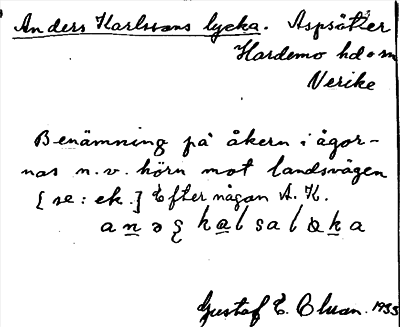 Anders Karlssons lycka. Aspsätter
Hardemo hd o sn
Nerike
Benämning på åkern i ågor-
nas n.v. hörn mot landsvägen
[se: ek.] Efter någon A. K.
Gustaf E.
1933